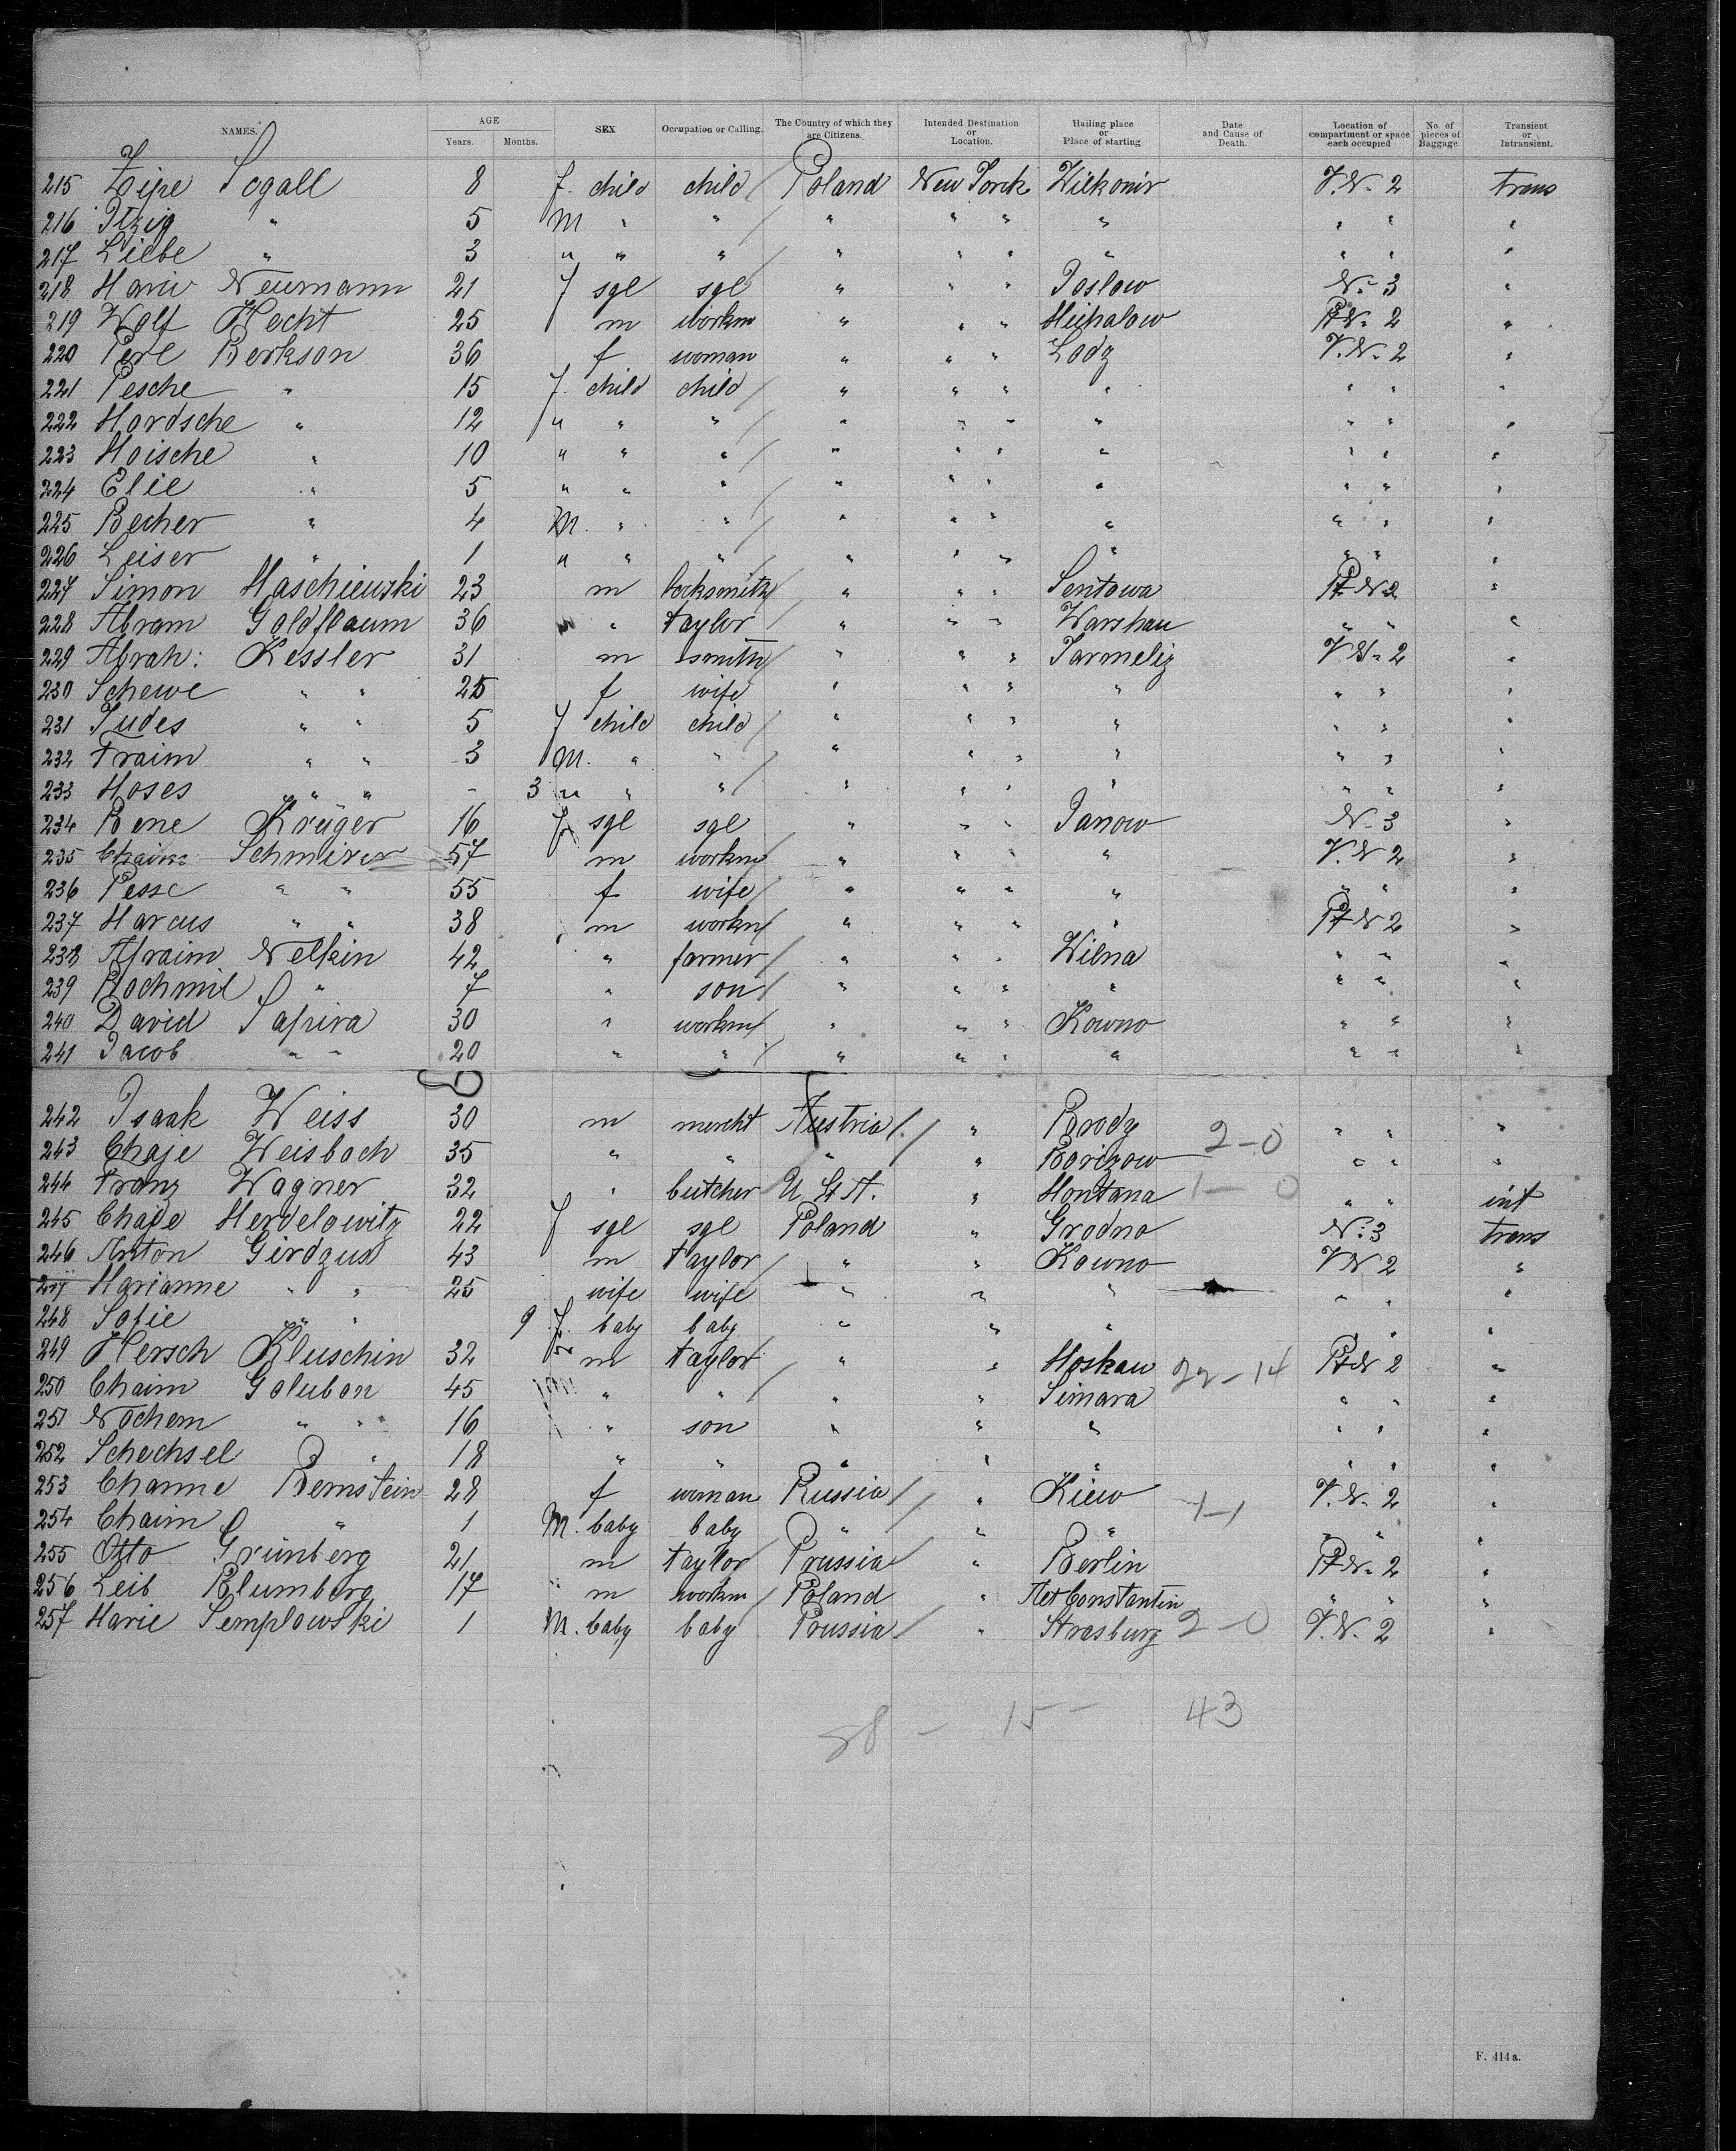 NAMES. AGE Years. Months. SEX Occupation or Calling. The Country of which they are Citizens. Intended Destination or Location. Hailing place or Place of starting Date and Cause of Death. Location of compartment or space each occupied No. of pieces of Baggage. Transient or Intransient.
215 Zipe Sogall 8 f. child child / Poland New Yorck Wilkomir V.N. 2 trans
216 Itzig " 5 M " " / " " " " " " "
217 Liebe " 3 " " " / " " " " " " "
218 Marie Neumann 21 f sgl sgl " " " Joslow N. 3 "
219 Wolf Hecht 25 m workm " " " Michalow Pt N. 2 "
220 Perl Berkson 36 f woman " " " Lodz V.N. 2 "
221 Pesche " 15 f. child child / " " " " " " "
222 Mordsche " 12 " " " / " " " " " " "
223 Moische " 10 " " " / " " " " " " "
224 Elie " 5 " " " / " " " " " " "
225 Becher " 4 M. " " / " " " " " " "
226 Leiser " 1 " " " / " " " " " " "
227 Simon Maschiewski 23 m locksmith / " " " Sentowa Pt N 2 "
228 Abram Goldflaum 36 " taylor / " " " Warshau " " "
229 Abrah: Kessler 31 m smith / " " " Jarmeliz V.N. 2 "
230 Schewe " " 25 f wife " " " " " " "
231 Judes " " 5 f child child / " " " " " " "
232 Fraim " " 3 M. " " " " " " " " "
233 Moses " " - 3 " " " / " " " " " " "
234 Bene Krüger 16 f sgl sgl " " " Janow N. 3 "
235 Chaim Schmirer 57 m workm / " " " " V.N 2 "
236 Pesse " " 55 f wife / " " " " " " "
237 Marcus " " 38 m workm / " " " " Pt N 2 "
238 Afraim Nelkin 42 " farmer / " " " Wilna " " "
239 Rochmil " 7 " son / " " " " " " "
240 David Sapira 30 " workm / " " " Kowno " " "
241 Jacob " " 20 " " / " " " " " " "
242 Isaak Weiss 30 m mercht Austria / / " Brody " " "
243 Chaje Weisbach 35 " " " " Borizow 2-0 " " "
244 Franz Wagner 32 " butcher U St A. " Montana 1-0 " " int
245 Chaje Merdelowitz 22 f sgl sgl Poland " Grodno N. 3 trans
246 Anton Girdzus 43 m taylor / " " Kowno V N 2 "
247 Marianne " " 25 wife wife " " " " " "
248 Sofie " " 9 f. baby baby " " " " "
249 Hersch Kluschin 32 m taylor / " " Moskau 22-14 Pt N 2 "
250 Chaim Golubon 45 " " / " " Simara " " "
251 Nochem " " 16 " son " " " " " "
252 Schechsel " " 18 " " " " " " " "
253 Channe Bernstein 28 f woman Russia / / " Kiew V.N. 2 "
254 Chaim " 1 M. baby baby " " " 1-1 " " "
255 Otto Grünberg 21 m taylor / Prussia / " Berlin Pt N. 2 "
256 Leib Blumberg 17 m workm / Poland " Alet Constantin " " "
257 Marie Semplowski 1 M. baby baby Prussia / " Strasburg 2-0 V.N. 2 "
58 - 15 - 43
F. 414a.